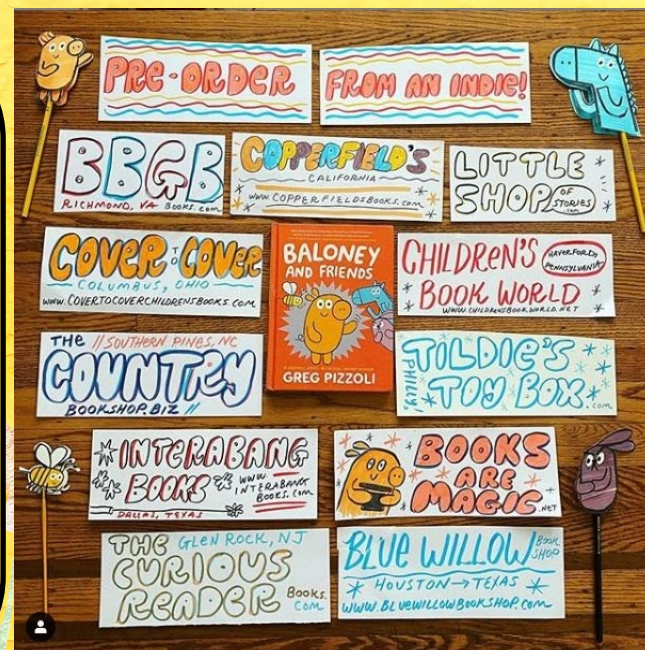 PRE-ORDER
FROM AN INDIE!
BBGB
RICHMOND, VA BOOKS.com
COPPERFIELD'S
CALIFORNIA
WWW.COPPERFIELDSBOOKS.COM
LITTLE
SHOP OF
STORIES
.com
COVER TO COVER
COLUMBUS, OHIO
WWW.COVERTOCOVERCHILDRENSBOOKS.COM
BALONEY
AND FRIENDS
GREG PIZZOLI
CHILDREN'S
HAVERFORD,
PENNSYLVANIA
BOOK WORLD
WWW.CHILDRENSBOOKWORLD.NET
THE //SOUTHERN PINES, NC
COUNTRY
BOOKSHOP.BIZ //
TILDIE'S
PHILLY!
TOY BOX
.com
INTERABANG
BOOKS
WWW.
INTERABANG
BOOKS.COM
DALLAS, TEXAS
BOOKS
ARE
MAGIC
.NET
THE GLEN ROCK, NJ
CURIOUS
READER BOOKS.
COM
BLUE WILLOW BOOK
SHOP
HOUSTON → TEXAS
WWW.BLUEWILLOWBOOKSHOP.COM